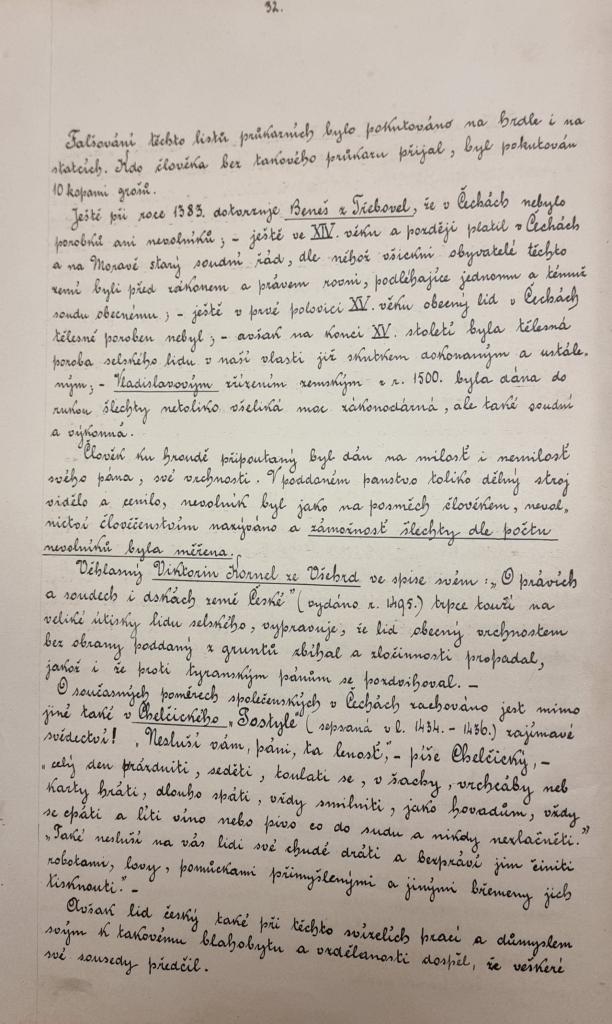 32.
Falšování těchto listů průkazních bylo pokutováno na hrdle i na
statcích. Kdo člověka bez takového průkazu přijal, byl pokutován
10 kopami grošů.
Ještě při roce 1383. dotvrzuje Beneš z Třebovel, že v Čechách nebylo
porobků ani nevolníků; - ještě ve XIV. věku a později platil v Čechách
a na Moravě starý soudní řád, dle něhož všickni obyvatelé těchto
zemí byli před zákonem a právem rovni, podléhajíce jednomu a témuž
soudu obecnému; - ještě v prvé polovici XV. věku obecný lid v Čechách
tělesně poroben nebyl; - avšak na konci XV. století byla tělesná
poroba selského lidu v naší vlasti již skutkem dokonaným a ustále-
ným; - Vladislavovým zřízením zemským z r. 1500. byla dána do
rukou šlechty netoliko všeliká moc zákonodárná, ale také soudní
a výkonná.
Člověk ku hroudě připoutaný byl dán na milosť i nemilosť
svého pána, své vrchnosti. V poddaném panstvo toliko dělný stroj
vidělo a cenilo, nevolník byl jako na posměch člověkem, nevol„
nictví člověčenstvím nazýváno a zámožnosť šlechty dle počtu
nevolníků byla měřena.
Věhlasný Viktorin Kornel ze Všehrd ve spise svém: „O právích
a soudech i dskách země České" (vydáno r. 1495.) trpce touží na
veliké útisky lidu selského, vypravuje, že lid obecný vrchnostem
bez obrany poddaný z gruntů zbíhal a zločinnosti propadal,
jakož i že proti tyranským pánům se pozdvihoval. -
O současných poměrech společenských v Čechách zachováno jest mimo
jiné také v Chelčického „Postyle" (sepsaná v l. 1434. - 1436.) zajímavé
svědectví! „Nesluší vám, páni, ta lenosť," - píše Chelčický, -
„celý den prázdniti, seděti, toulati se, v šachy, vrhcáby neb
karty hráti, dlouho spáti, vždy smilniti, jako hovadům, vždy
se cpáti a líti víno nebo pivo co do sudu a nikdy nezlačněti."
„Také nesluší na vás lidi své chudé dráti a bezpráví jim činiti
robotami, lovy, pomůckami přimyšlenými a jinými břemeny jich
tisknouti." -
Avšak lid český také při těchto svízelích prací a důmyslem
svým k takovému blahobytu a vzdělanosti dospěl, že veškeré
své sousedy předčil.